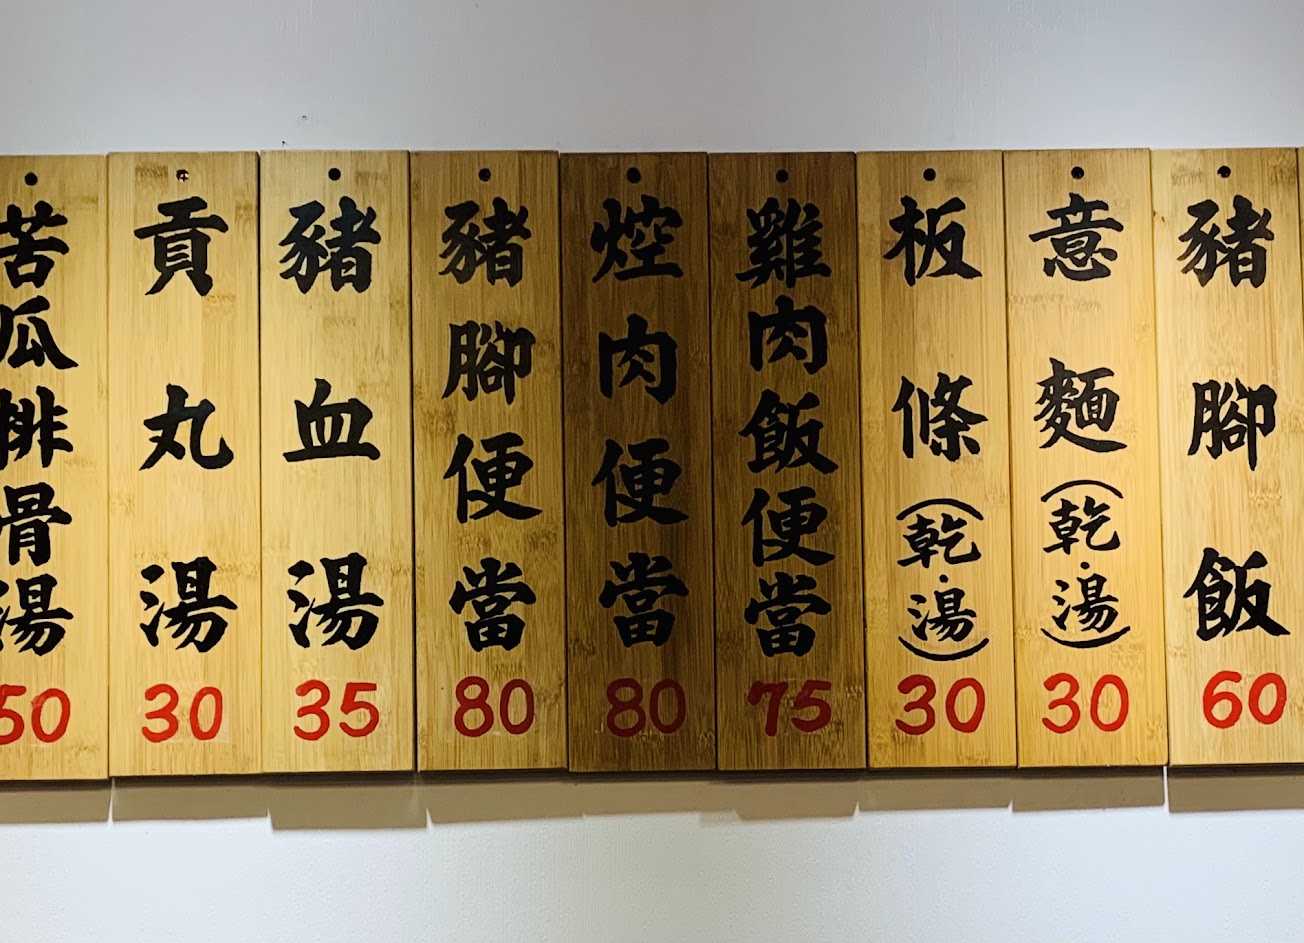 豬腳飯
60
意麵（乾·湯）
30
板條（乾·湯）
30
雞肉飯便當
75
焢肉便當
80
豬腳便當
80
豬血湯
35
貢丸湯
30
苦瓜排骨湯
50